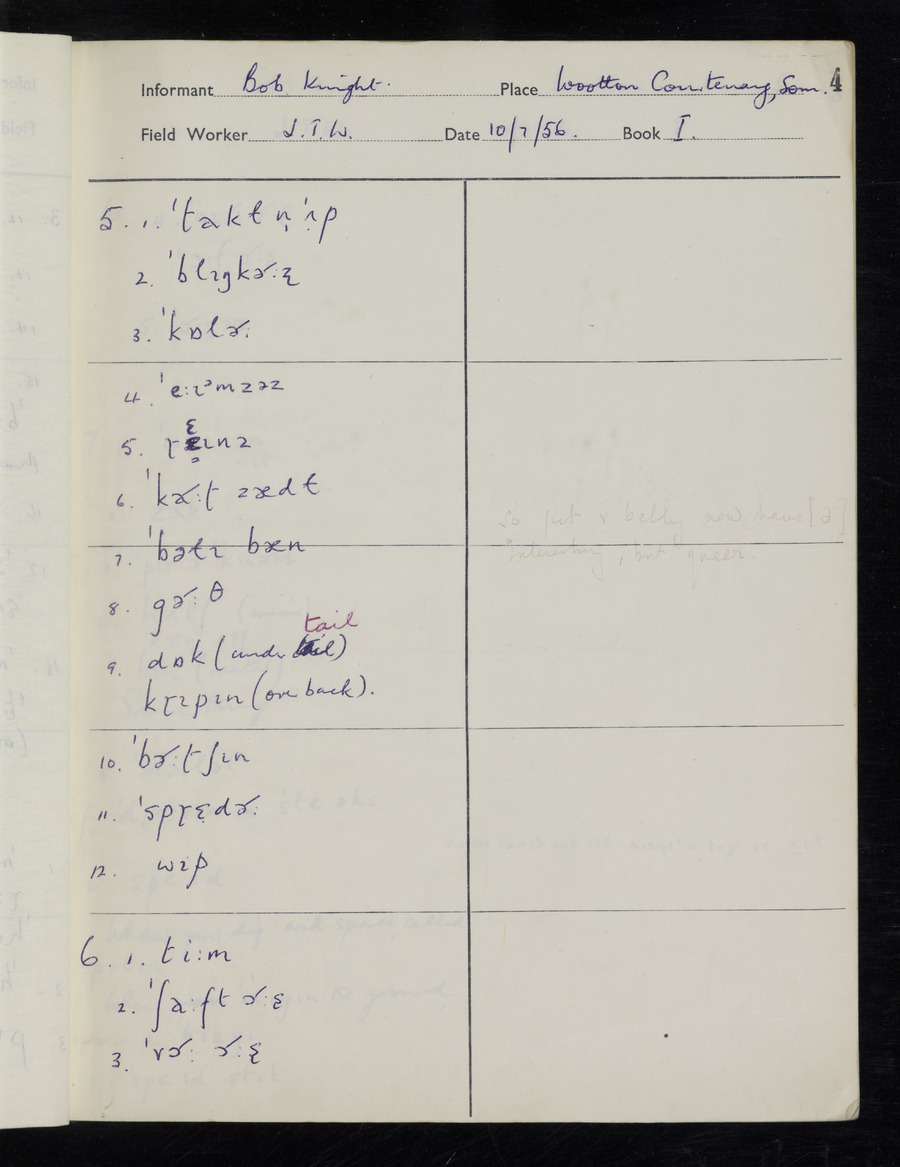 4
Informant Bob Knight. Place Wootton Courtenay, Som.
Field Worker J.T.W. Date 10/7/56. Book I.
5. 1. ˈtakt n̩ ˈɪp
2. ˈblɪŋkɚːz
3. ˈkɒlɚː
4. ˈeːɪᵊmzəz
5. ɽɛɪnz
6. ˈkɚːt zædt
7. ˈbətɪ bæn
8. gɚːθ
9. dɒk (under tail)
tail
kɽɪpɪn (over back).
10. ˈbɚːtʃɪn
11. ˈspɽɛ̣dɚː
12. wɪp
6. 1. tiːm
2. ˈʃaːft ɚːz
3. ˈvɚː ɚːz
so put & belly now have [ə]
Interesting, but queer.